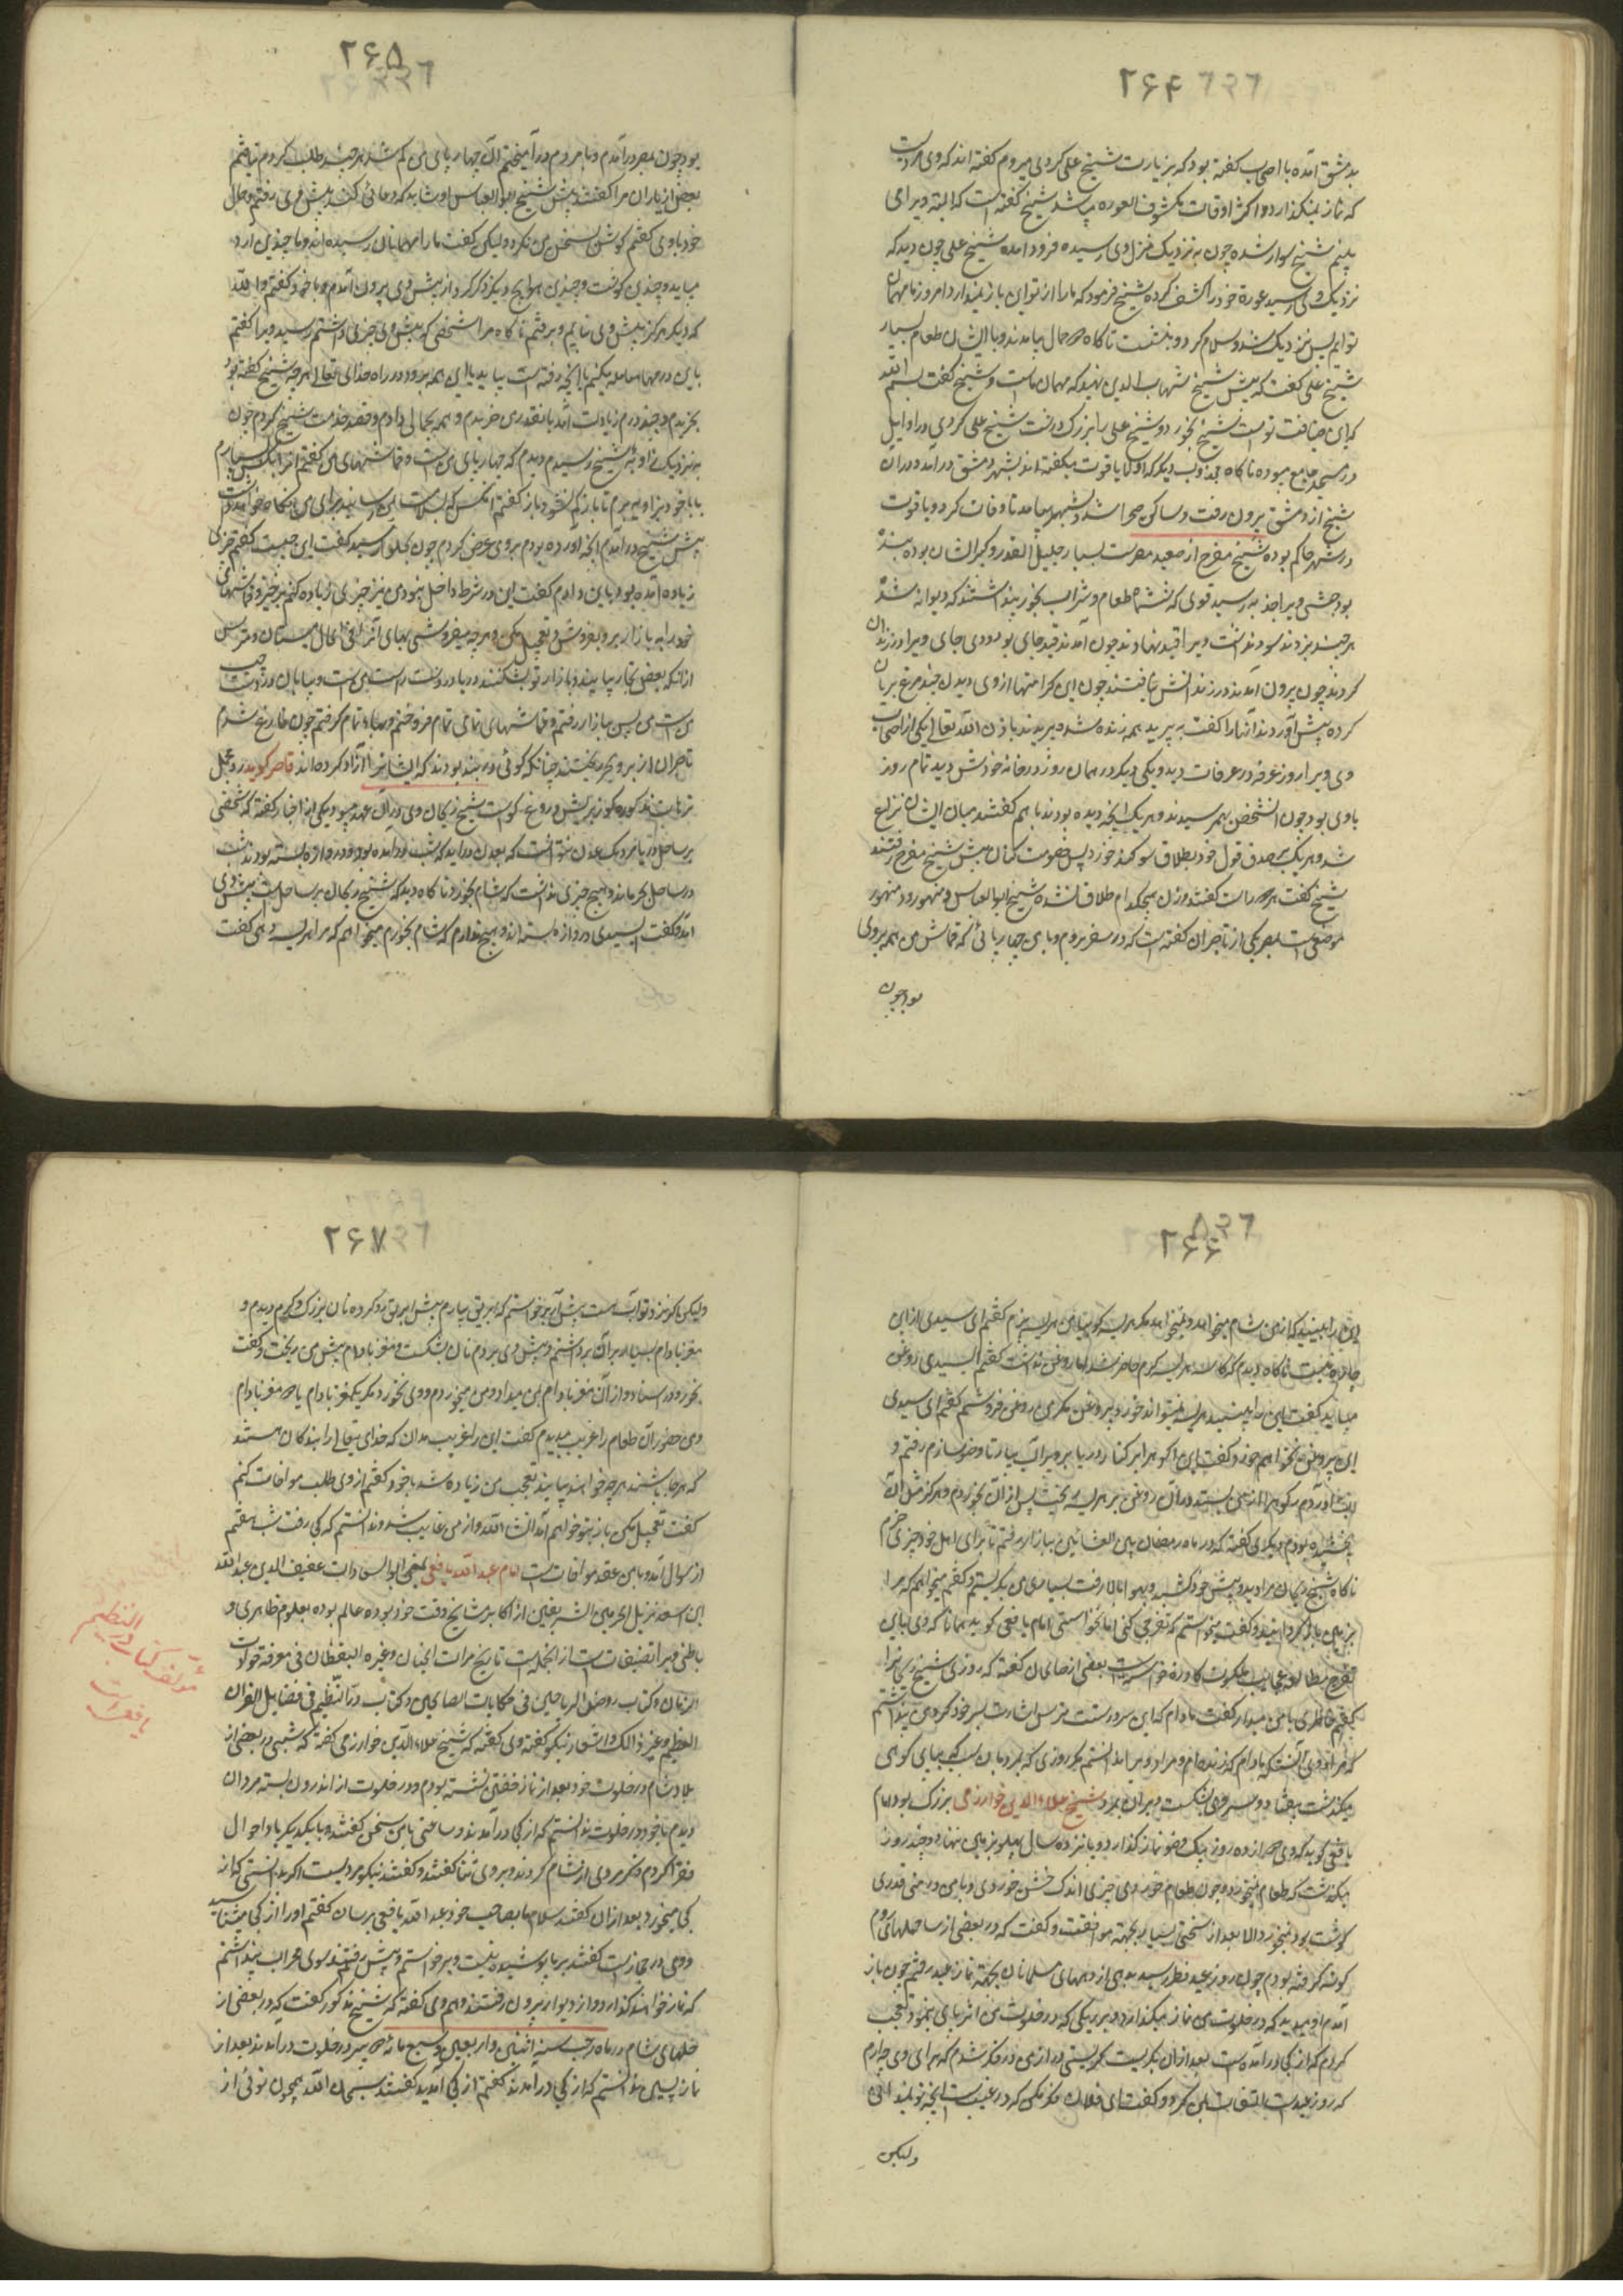 ۲۶۴
بدمشق آمده با اصحاب گفته بود که بزیارت شیخ علی کردی میروم گفته اند که وی مردیست
که نماز نمیگذارد و اکثر اوقات مکشوف العوره میباشد شیخ گفته است که البته ویرا می
بینم شیخ سوار شده چون به نزدیک منزل وی رسیده فرود آمده شیخ علی چون دید که
نزدیک وی رسید عورة خود را کشف کرده شیخ فرمود که ما را از تو این باز نمیدارد امروز ما مهمان
توایم پس نزدیک شد و سلام کرد و بنشست ناگاه حمال بیامدند و با ایشان طعام بسیار
شیخ علی گفت که پیش شیخ شهاب الدین نهید که مهمان ماست و شیخ گفت بسم الله
که این ضیافت تو است شیخ بخورد و شیخ علی را بزرگ داشت شیخ علی کردی در اوایل
در مسجد جامع میبوده ناگاه مجذوب دیگر که او را یاقوت میگفته اند بشهر دمشق درآمد و در آن
شیخ از دمشق بیرون رفت و ساکن صحرا شد و بشهر نیامد تا وفات کرد و یاقوت
در شهر حاکم بوده شیخ مفرح از صعید مصرست بسیار جلیل القدر و کبیر الشان بوده بنده
بود حبشی ویرا جذبه رسید قوی که شش ماه طعام و شراب نخورد پنداشتند که دیوانه شد
هر چند بزدند سود نداشت ویرا قید نهادند چون آمدند قید جای بود و وی جای ویرا در زندان
کردند چون بیرون آمدند در زندانش نیافتند چون این کرامتها از وی دیدن چند مرغ بریان
کرده پیش آوردند آنها را گفت به پرید همه زنده شده پریدند باذن الله تعالی یکی از اصحاب
وی ویرا روز عرفه در عرفات دید و یکی دیگر در همان روز در خانه خودش دید تمام روز
با وی بود چون آن شخص بهم رسیدند و هر یک آنچه دیده بودند با هم گفتند میان ایشان نزاع
شد و هر یک بصدق قول خود بطلاق سوگند خورد پس خصومت کنان پیش شیخ مفرح رفتند
شیخ گفت هر دو راست گفتند و زن هیچکدام طلاق نشده شیخ ابو العباس دمنهوری و دمنهور
موضعیست بمصر یکی از تاجران گفته است که در سفر بودم و با من چهارپائی که قماش من همه بر وی
بود چون
۲۶۵
بود چون بمصر درآمدم و با مردم درآمیختم آن چهارپای من گم شد هر چند طلب کردم نیافتم
بعضی از یاران مرا گفتند پیش شیخ ابو العباس او شاید که دعائی کند پیش وی رفتم و حال
خود با وی گفتم گوش بسخن من نکرد و لیکن گفت ما را مهمانان رسیده اند و ما چندین آرد
میباید و چندین گوشت و چندین حوایج دیگر ذکر کرد از پیش وی بیرون آمدم و با خود گفتم والله
که دیگر هرگز پیش وی نیایم و برفتم ناگاه مرا شخصی که پیش وی چیزی داشتم رسید ویرا گفتم
با این درمها معامله میکنم تا آنچه رفته است بیاید یا این هم برود در راه خدای تعالی هر چه شیخ گفته بود
بخریدم و چند درم زیادت آمد بآن قدری خریدم و همه بحمالی دادم و قصد خدمت شیخ کردم چون
به نزدیک زاویه شیخ رسیدم دیدم که چهارپای من است و قماشهای من گفتم
با خود بزاویه برم تا باز گم نشود باز گفتم آنکس که بسلامت بمن رسانید برای من نگاه خواهد داشت
پیش شیخ درآمدم آنچه آورده بودم بر وی عرض کردم چون رسید گفت این چیست گفتم چیزی
زیاده آمده بود باین دادم گفت این در شرط داخل نبود من نیز چیزی زیاده کنم برخیز و قماشهای
خود را به بازار بر و بفروش و تعجیل مکن و هر چه بفروشی بهای آن فی الحال میستان و مترس
از آنکه بعضی تجار بیایند و بازار تو بشکنند دریا در دست راست من است و بیابان در دست چپ
من است پس ببازار رفتم و قماشهای تمام فروختم و بها تمام گرفتم چون فارغ شدم
تاجران از بر و بحر بریختند چنانکه گوئی در بند بودند که ایشانرا آزاد کرده اند
برساحل دریا نزدیک عدن
در ساحل بحر ماند و هیچ چیزی نداشت که شام بخورد ناگاه دید که شیخ ریحان بر ساحل است پیش وی
آمد و گفت سیدی دروازه بسته اند و هیچ ندارم که شام بخورم میخواهم که مرا هریسه دهی گفت
۲۶۶
این را ببینید که از من شام میخواهد و نمیخواهد مگر هریسه گویا من هریسه پزم گفتم ای سیدی از این
چاره نیست ناگاه دیدم که کاسه هریسه گرم حاضر شد اما روغن نداشت گفتم ای سیدی روغن
میباید گفت این را ببینید هریسه نمیتواند خورد بی روغن مگر من روغن فروشم گفتم ای سیدی
این بی روغن نخواهم خورد گفت این رکوه را بر کنار دریا ببر و برای من آب بیار تا وضو سازم رفتم و
آب آوردم رکوه را از من بستد و از آن روغن بر هریسه ریخت پس از آن بخوردم و هرگز مثل آن
نچشیده بودم دیگری گفته که در ماه رمضان بین العشائین ببازار رفتم تا برای اهل خود چیزی خرم
ناگاه شیخ ریحان مرا دید و پیش خود کشید و بهوا بالا رفت بسیار من بگریستم و گفتم میخواهم که مرا
بزمین باز گردانید و گفت میخواستم که تفرج کنی اما نخواستی امام یافعی گوید همانا که وی باین
تفرج مطالعه عجایب ملکوت خواسته است بعضی از صالحان گفته که روزی شیخ ریحان را
گفتم خاطری با من میدار گفت مادام که این سر درست است مترس اشارت بسر خود کرد من پنداشتم
که مراد وی آنست که مادام که زنده ام و مراد ویرا ندانستم مگر روزی که
میگذشت بیفتاد و سر وی بشکست و بر آن بمرد شیخ علاء الدین خوارزمی بزرگ بود امام
یافعی گوید که وی دوازده روز بیک وضو نماز گذارد و پانزده سال پهلو بزمین ننهاد و چند روز
میگذشت که طعام نمیخورد و چون طعام خوردی چیزی اندک خشن خوردی و با من در منی قدری
گوشت بود نخورد الا بعد از سختی بسیار بجهة موافقت و گفت که در بعضی از ساحلهای روم
گوشه گرفته بودم چون روز عید فطر رسید بدهی از دههای مسلمانان بجهة نماز عید رفتم چون باز
آمدم دیدم که در خلوت من نماز میگذارد و بر ریگی که در خلوت من اثر پای نبود تعجب
کردم که از کجا درآمده است بعد از آن بگریست گریستنی دراز من در فکر شدم که برای وی چه آرم
که روز عید است التفات بمن کرد و گفت ای فلان فکر مکن که در غیب است آنچه تو ندانی
ولیکن
۲۶۷
ولیکن اگر نزد تو آب هست پیش آر برخواستم که ابریق بیارم پیش ابریق دو گرده نان بزرگ و گرم دیدم و
مغز بادام بسیار برداشتم و پیش وی بردم نان بشکست و مغز بادام پیش من ریخت و گفت
بخور و از آن مغز بادام بمن میداد و من میخوردم و وی نخورد مگر یک مغز بادام یا دو مغز بادام
و من حضور آن طعام را غریب میدیدم گفت این را غریب مدان که خدای تعالی را بندگان هستند
که هر جا باشند هر چه خواهند بیابند تعجب من زیاده شد با خود گفتم از وی طلب مواخات کنم
گفت تعجیل مکن باز بتو خواهم آمد انشاء الله و از من غایب شد و ندانستم که کجا رفت
از شوال آمد و با من عقد مواخات بست امام عبد الله یافعی یمنی ابو السعادات عفیف الدین عبد الله
ابن اسعد نزیل الحرمین الشریفین از اکابر مشایخ وقت خود بوده عالم بوده بعلوم ظاهری و
باطنی ویرا تصنیفات است از آنجمله است تاریخ مرات الجنان و عبرة الیقظان فی معرفة حوادث
الزمان و کتاب روض الریاحین فی حکایات الصالحین و کتاب در النظیم فی فضایل القران
العظیم و غیر ذالک و اشعار نیکو گفته وی گفته که شیخ علاء الدین خوارزمی گفته که شبی در بعضی از
بلاد شام در خلوت خود بعد از نماز خفتن نشسته بودم و در خلوت از اندرون بسته مردان
دیدم با خود در خلوت ندانستم که از کجا درآمدند و ساعتی با من سخن گفتند و با یکدیگر یاد احوال
فقرا کردیم و ذکر مردی از شام کردند و بر وی ثنا گفتند و گفتند نیکو مردیست اگر بدانستی که از
کجا میخورد بعد از آن گفتند سلام ما بصاحب خود عبد الله یافعی برسان گفتم او را از کجا میشناسید
و وی در حجاز است گفتند بر ما پوشیده نیست و برخواستند و پیش رفتند بسوی محراب پنداشتم
که نماز خواهند گذارد از دیوار بیرون رفتند و هم وی گفته که شیخ مذکور گفت که در بعضی از
خلهای شام در ماه رجب سنه اثنین و اربعین و سبع مائه دو پیر در خلوت درآمدند بعد از
نماز پسین ندانستم که از کجا درآمدند گفتم از کجا آمدید گفتند سبحان الله همچون توئی از
مؤلف کتاب
در النظیم
یافعی است